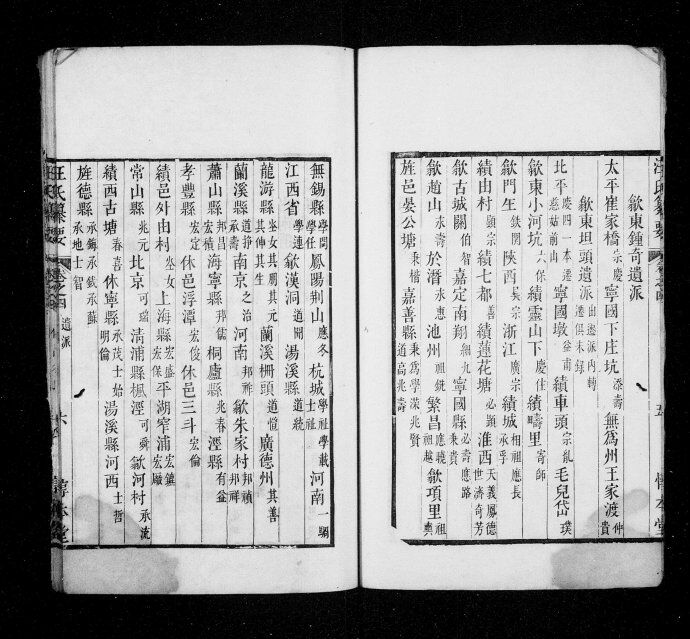 歙東鍾奇遺派
太平崔家橋宗慶 寧國下庄坑添壽 無為州王家渡仲貴
歙東坦頭遺派出遊派內轉遷俱未録
北平慶四一本遷慈姑前山 寧國墩益甫 績車頭宗亂 毛兒岱璞
歙東小河坑六保 績靈山下慶仕 績疇里寄師
歙門生鉄関 陝西吳宗 浙江廣宗 績城相祖應長承孚
績由村顯宗顯山 績七都一善 績蓮花塘必顯 淮西天義鳳德世濟奇芳
歙古城關伯智 嘉定南翔細九 寧國縣必壽應路秉貴
歙趙山永壽 於潛永惠 池州祖銑 繁昌應曉祖越 歙項里興
旌邑晏公塘秉楷 嘉善縣秉為學深兆賢道高兆壽
汪氏纂要 卷之四 五 惇本堂
無錫縣學問學任 鳳陽荆山應冬 杭城學祖學載士祖 河南一騆
江西省學連 歙漢洞道開 湯溪縣道統
龍游縣㘴女其朋其元其仲其生 蘭溪柵頭道愷 廣德州其善
蘭溪縣道挣承壽 南京之治 河南邦祥 歙朱家村邦禎邦祥
蕭山縣邦昌宏積 海寧縣邦儒 桐廬縣兆春 涇縣有益
孝豐縣宏定 休邑浮潭宏俊 休邑三斗宏倫
績邑外由村㘴女 上海縣宏盛宏保 平湖窄浦宏鎮宏顯
常山縣兆元 北京可瑞 清浦縣楓涇可舜 歙河村承流
績西古塘春喜 休寧縣承茂士始明倫 湯溪縣河西士哲
旌德縣承鏄承鉞承蘇承地士智
汪氏纂要 卷之四 遺派 六 惇本堂